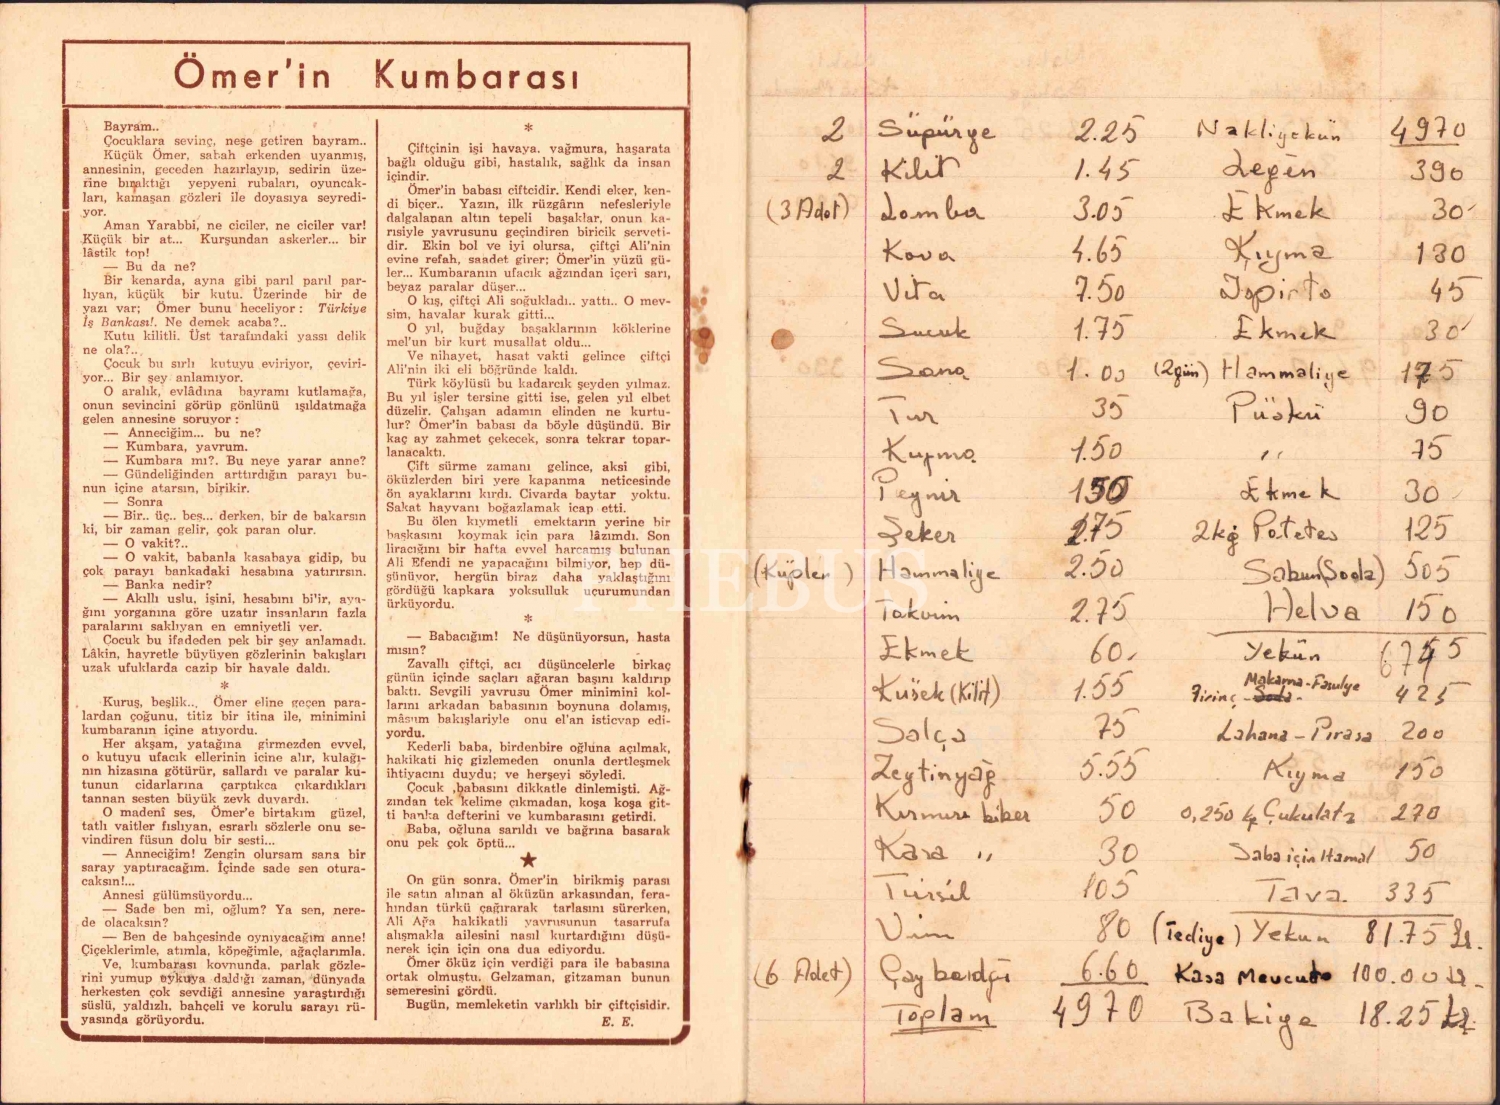 Ömer'in Kumbarası
Bayram..
Çocuklara sevinç, neşe getiren bayram..
Küçük Ömer, sabah erkenden uyanmış,
annesinin, geceden hazırlayıp, sedirin üze-
rine bıraktığı yepyeni rubaları, oyuncak-
ları, kamaşan gözleri ile doyasıya seyredi-
yor.
Aman Yarabbi, ne ciciler, ne ciciler var!
Küçük bir at... Kurşundan askerler... bir
lâstik top!
— Bu da ne?
Bir kenarda, ayna gibi parıl parıl par-
lıyan, küçük bir kutu. Üzerinde bir de
yazı var; Ömer bunu heceliyor : Türkiye
İş Bankası!. Ne demek acaba?..
Kutu kilitli. Üst tarafındaki yassı delik
ne ola?..
Çocuk bu sırlı kutuyu eviriyor, çeviri-
yor... Bir şey anlamıyor.
O aralık, evlâdına bayramı kutlamağa,
onun sevincini görüp gönlünü ışıldatmağa
gelen annesine soruyor :
— Anneciğim... bu ne?
— Kumbara, yavrum.
— Kumbara mı?. Bu neye yarar anne?
— Gündeliğinden arttırdığın parayı bu-
nun içine atarsın, birikir.
— Sonra
— Bir.. üç.. beş... derken, bir de bakarsın
ki, bir zaman gelir, çok paran olur.
— O vakit?..
— O vakit, babanla kasabaya gidip, bu
çok parayı bankadaki hesabına yatırırsın.
— Banka nedir?
— Akıllı uslu, işini, hesabını bilir, aya-
ğını yorganına göre uzatır insanların fazla
paralarını saklıyan en emniyetli ver.
Çocuk bu ifadeden pek bir şey anlamadı.
Lâkin, hayretle büyüyen gözlerinin bakışları
uzak ufuklarda cazip bir havale daldı.
*
Kuruş, beşlik.., Ömer eline geçen para-
lardan çoğunu, titiz bir itina ile, minimini
kumbaranın içine atıyordu.
Her akşam, yatağına girmezden evvel,
o kutuyu ufacık ellerinin icine alır, kulağı-
nın hizasına götürür, sallardı ve paralar ku-
tunun cidarlarına çarptıkca çıkardıkları
tannan sesten büyük zevk duvardı.
O madenî ses, Ömer'e birtakım güzel,
tatlı vaitler fıslıyan, esrarlı sözlerle onu se-
vindiren füsun dolu bir sesti...
— Anneciğim! Zengin olursam sana bir
saray yaptıracağım. İçinde sade sen otura-
caksın!...
Annesi gülümsüyordu...
— Sade ben mi, oğlum? Ya sen, nere-
de olacaksın?
— Ben de bahçesinde oynıyacağım anne!
Çiçeklerimle, atımla, köpeğimle, ağaçlarımla.
Ve, kumbarası kovnunda, parlak gözle-
rini yumup uykuya daldığı zaman, dünyada
herkesten çok sevdiği annesine yaraştırdığı
süslü, yaldızlı, bahçeli ve korulu sarayı rü-
yasında görüyordu.
*
Çiftçinin işi havaya. vağmura, haşarata
bağlı olduğu gibi, hastalık, sağlık da insan
içindir.
Ömer'in babası ciftcidir. Kendi eker, ken-
di biçer.. Yazın, ilk rüzgârın nefesleriyle
dalgalanan altın tepeli başaklar, onun ka-
rısiyle yavrusunu geçindiren biricik serveti-
dir. Ekin bol ve iyi olursa, çiftçi Ali'nin
evine refah, saadet girer; Ömer'in yüzü gü-
ler... Kumbaranın ufacık ağzından içeri sarı,
beyaz paralar düşer...
O kış, çiftçi Ali soğukladı.. yattı.. O mev-
sim, havalar kurak gitti...
O yıl, buğday başaklarının köklerine
mel'un bir kurt musallat oldu...
Ve nihayet, hasat vakti gelince çiftçi
Ali'nin iki eli böğründe kaldı.
Türk köylüsü bu kadarcık şeyden yılmaz.
Bu yıl işler tersine gitti ise, gelen yıl elbet
düzelir. Çalışan adamın elinden ne kurtu-
lur? Ömer'in babası da böyle düşündü. Bir
kaç ay zahmet çekecek, sonra tekrar topar-
lanacaktı.
Çift sürme zamanı gelince, aksi gibi,
öküzlerden biri yere kapanma neticesinde
ön ayaklarını kırdı. Civarda baytar yoktu.
Sakat hayvanı boğazlamak icap etti.
Bu ölen kıymetli emektarın yerine bir
başkasını koymak için para lâzımdı. Son
liracığını bir hafta evvel harcamış bulunan
Ali Efendi ne yapacağını bilmiyor, hep dü-
şünüvor, hergün biraz daha yaklaştığını
gördüğü kapkara yoksulluk uçurumundan
ürküyordu.
*
— Babacığım! Ne düşünüyorsun, hasta
mısın?
Zavallı çiftçi, acı düşüncelerle birkaç
günün içinde saçları ağaran başını kaldırıp
baktı. Sevgili yavrusu Ömer minimini kol-
larını arkadan babasının boynuna dolamış,
mâsum bakışlariyle onu el'an isticvap edi-
yordu.
Kederli baba, birdenbire oğluna açılmak,
hakikati hiç gizlemeden onunla dertleşmek
ihtiyacını duydu; ve herşeyi söyledi.
Çocuk babasını dikkatle dinlemişti. Ağ-
zından tek kelime çıkmadan, koşa koşa git-
ti banka defterini ve kumbarasını getirdi.
Baba, oğluna sarıldı ve bağrına basarak
onu pek çok öptü...
★
On gün sonra, Ömer'in birikmiş parası
ile satın alınan al öküzün arkasından, fera-
hından türkü çağırarak tarlasını sürerken,
Ali Ağa hakikatli yavrusunun tasarrufa
alışmakla ailesini nasıl kurtardığını düşü-
nerek için için ona dua ediyordu.
Ömer öküz için verdiği para ile babasına
ortak olmuştu. Gelzaman, gitzaman bunun
semeresini gördü.
Bugün, memleketin varlıklı bir çiftçisidir.
E. E.
PHEBUS
2 Süpürge 2.25 Nakliyekün 4970
2 Kilit 1.45 Legen 390
(3 Adet) Lamba 3.05 Ekmek 30
Kova 4.65 Kıyma 130
Vita 7.50 İspirto 45
Sucuk 1.75 Ekmek 30
Sana 1.00 (2gün) Hammaliye 175
Tur 35 Püskü 90
Kıyma 1.50 ,, 75
Peynir 150 Ekmek 30
Şeker 275 2kg Patetes 125
(Küpler) Hammaliye 2.50 Sabun(Soda) 505
Takvim 2.75 Helva 150
Ekmek 60 Yekün 6745
Kuşek (Kilit) 1.55 Pirinç - Makarna - Fasulye 425
Salça 75 Lahana - Pırasa 200
Zeytinyağ 5.55 Kıyma 150
Kırmızı biber 50 0,250 kg Çukulata 270
Kara ,, 30 Saba için Hamal 50
Türsil 105 Tava 335
Vim 80 (Tediye) Yekun 81.75 Lr.
(6 Adet) Çay bardğı 6.60 Kasa Mevcudu 100.00 Lr.
Toplam 4970 Bakiye 18.25 Lr.